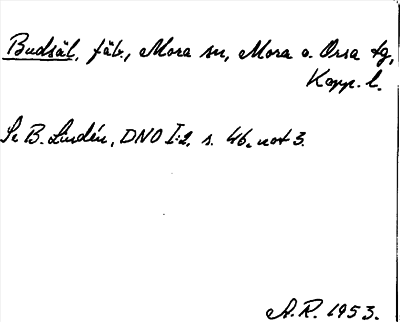 Budsäl, fäb., Mora sn, Mora o. Orsa tg,
Kopp. l.
Se B. Lindén, DNO I:2, s. 46, not 3.
A.R. 1953.